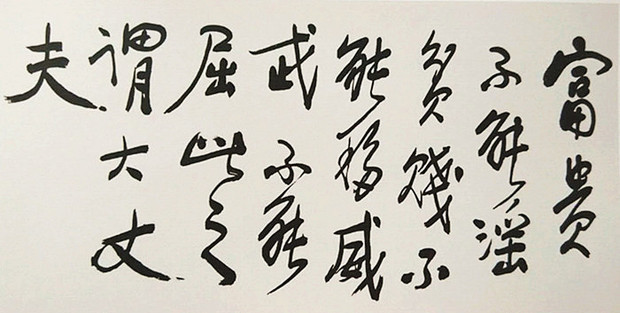 富貴
不能淫
貧賤不
能移威
武不能
屈此之
謂大丈
夫